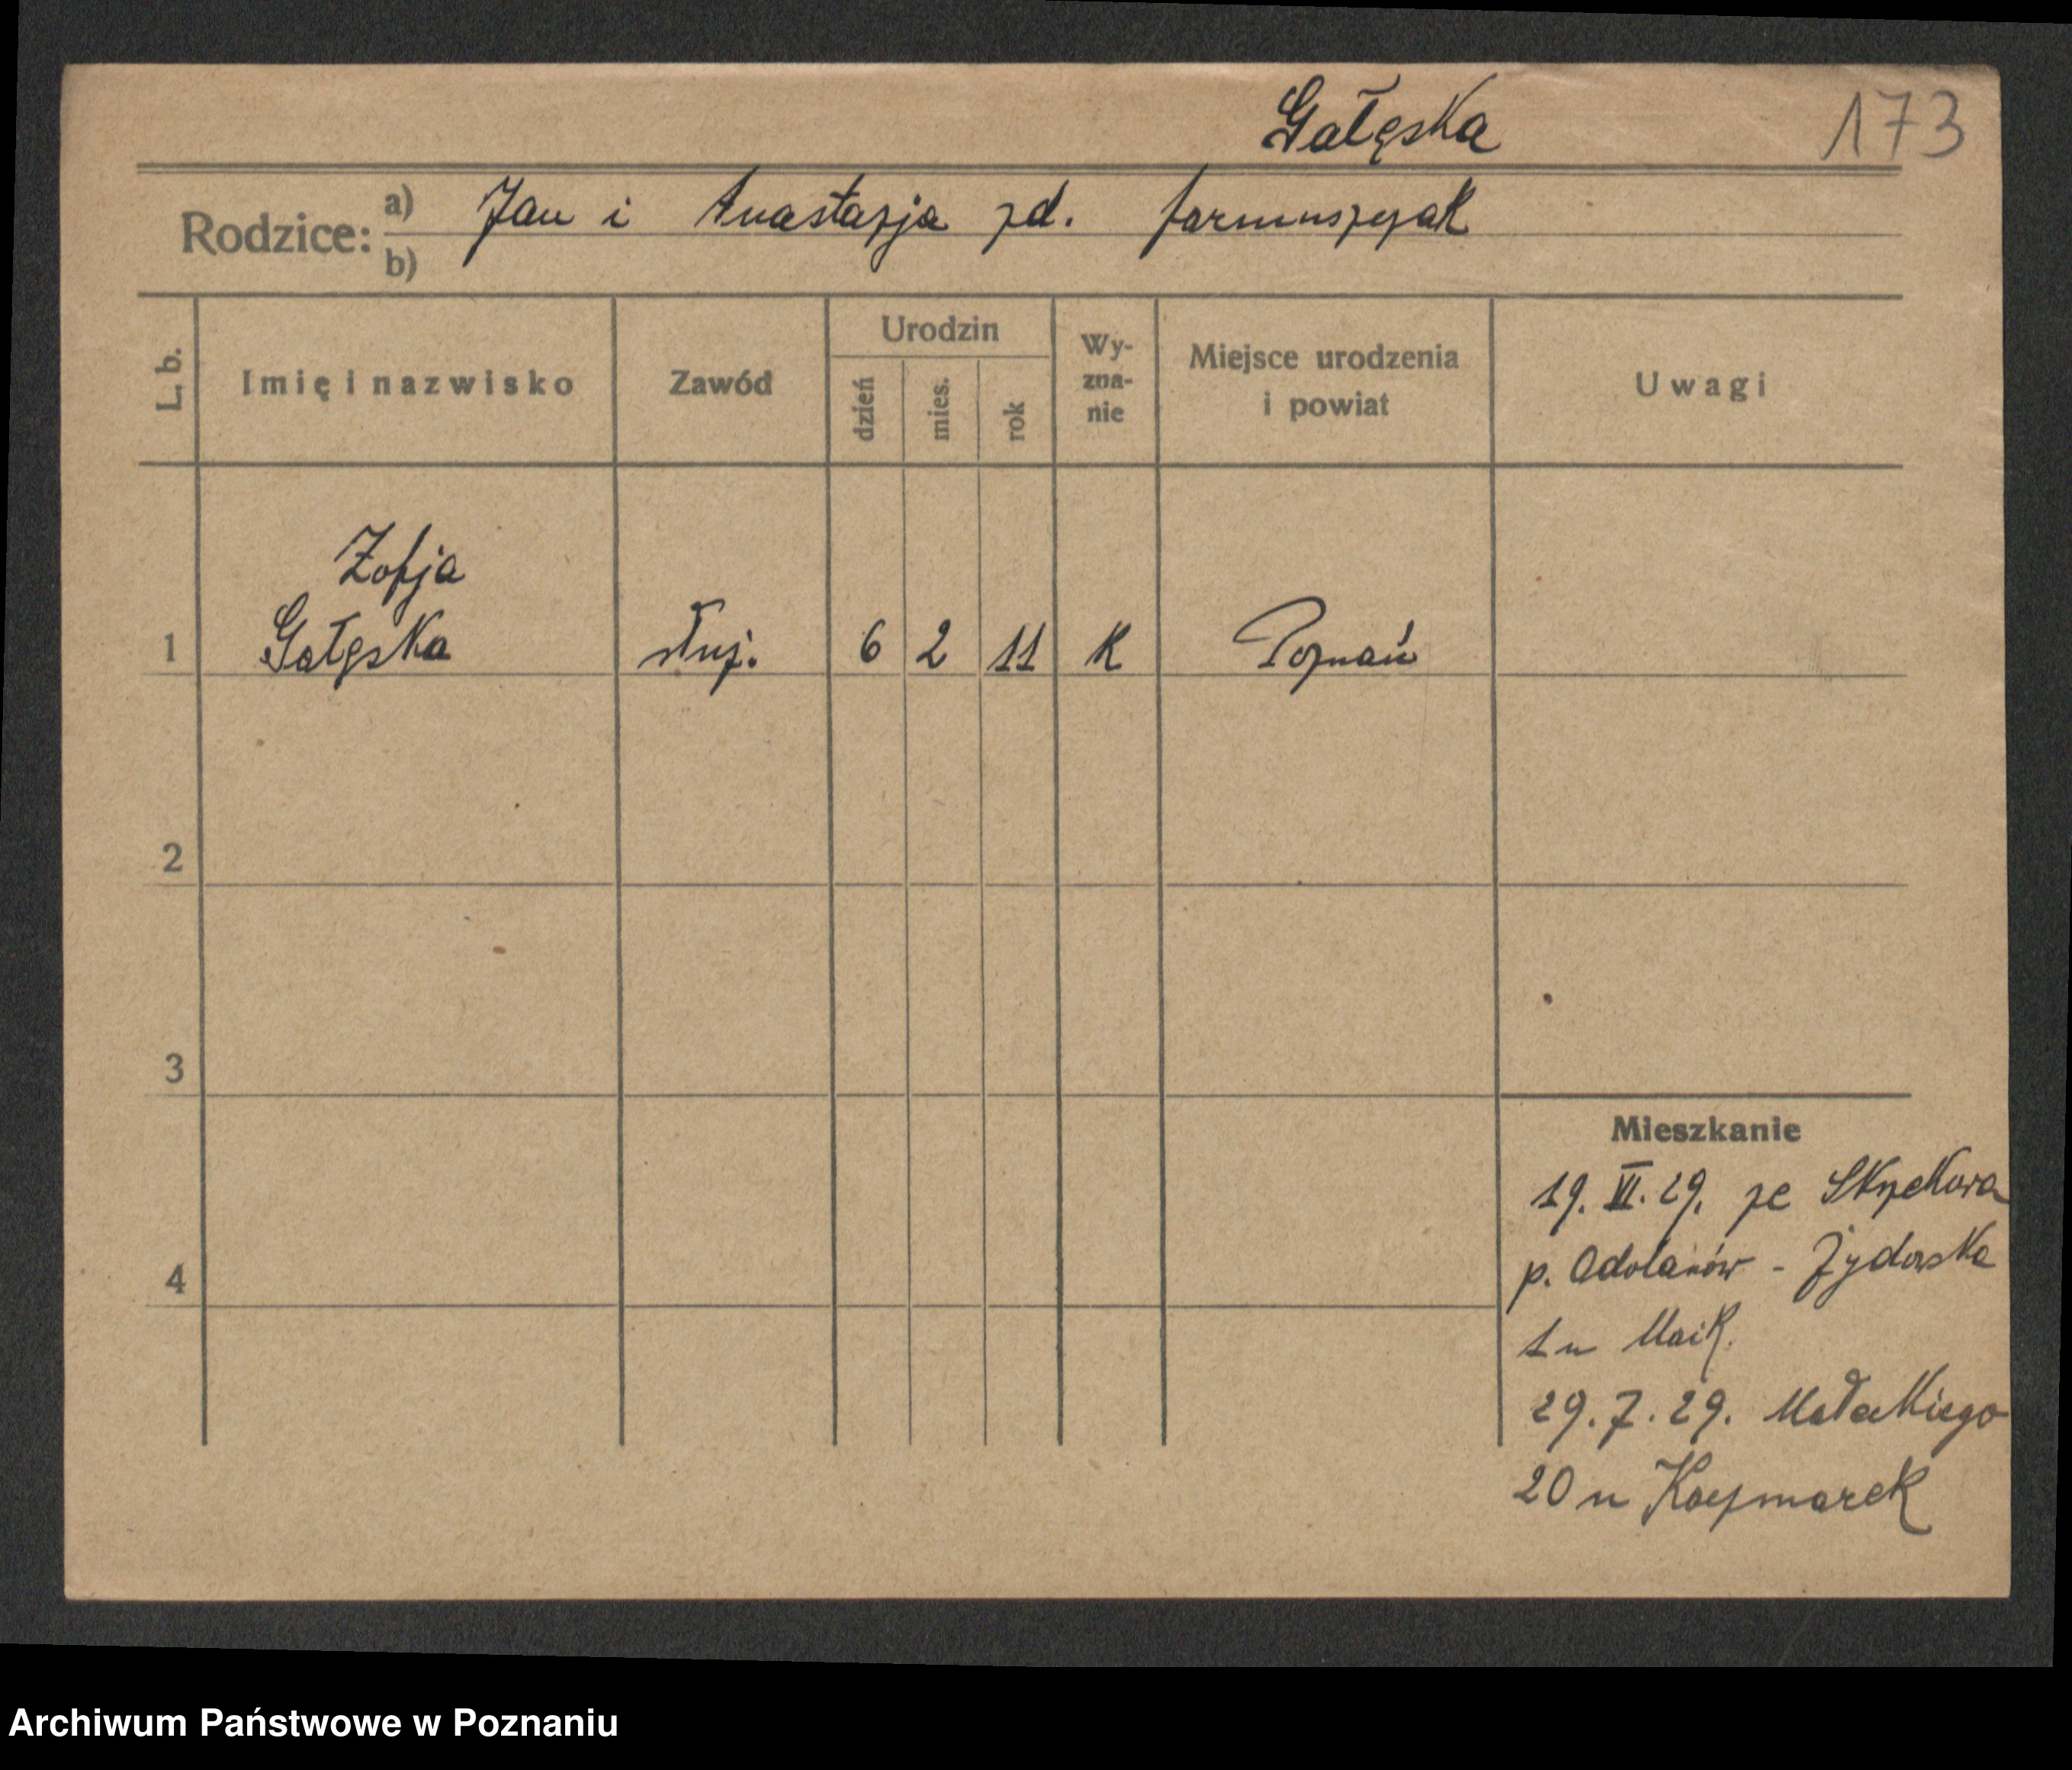 Gałęska 173
Rodzice: a) Jan i Anastazja zd. Jarmuszczak
b)
L. b. Imię i nazwisko Zawód Urodzin dzień mies. rok Wy-zna-nie Miejsce urodzenia i powiat Uwagi
Zofja
1 Gałęska służ. 6 2 11 K Poznań
2
3
Mieszkanie
19. VI. 29. ze
p. Odolanów - Żydowska
4
1 u Maik.
29. 7. 29. Małeckiego
20 u Kaczmarek
Archiwum Państwowe w Poznaniu